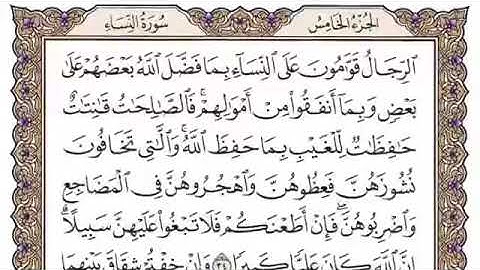 سُورَةُ النِّسَاءِ الجُزْءُ الخَامِسُ
ٱلرِّجَالُ قَوَّٰمُونَ عَلَى ٱلنِّسَآءِ بِمَا فَضَّلَ ٱللَّهُ بَعْضَهُمْ عَلَىٰ
بَعْضٍ وَبِمَآ أَنفَقُوا۟ مِنْ أَمْوَٰلِهِمْ ۚ فَٱلصَّٰلِحَٰتُ قَٰنِتَٰتٌ
حَٰفِظَٰتٌ لِّلْغَيْبِ بِمَا حَفِظَ ٱللَّهُ ۚ وَٱلَّٰتِى تَخَافُونَ
نُشُوزَهُنَّ فَعِظُوهُنَّ وَٱهْجُرُوهُنَّ فِى ٱلْمَضَاجِعِ
وَٱضْرِبُوهُنَّ ۖ فَإِنْ أَطَعْنَكُمْ فَلَا تَبْغُوا۟ عَلَيْهِنَّ سَبِيلًا ۗ
إِنَّ ٱللَّهَ كَانَ عَلِيًّا كَبِيرًا ٣٤ وَإِنْ خِفْتُمْ شِقَاقَ بَيْنِهِمَا